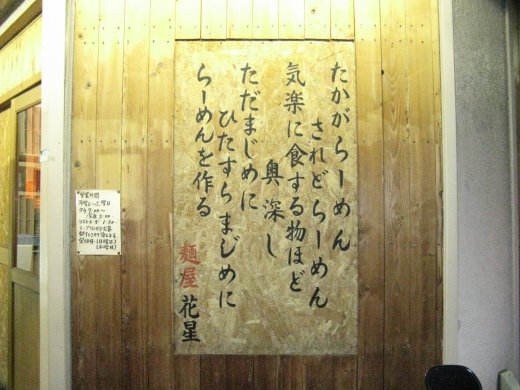 たかがらーめん
されどらーめん
気楽に食する物ほど
奥深し
ただまじめに
ひたすらまじめに
らーめんを作る
麺屋 花星
営業時間